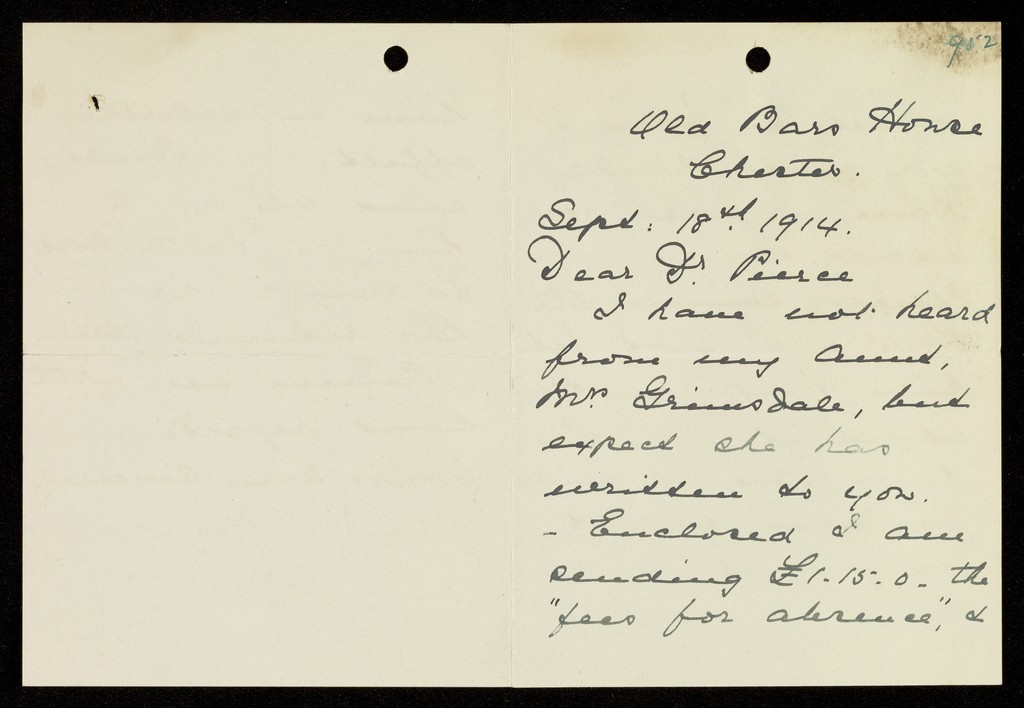 952
Old Bars House
Chester.
Sept: 18th. 1914.
Dear Dr. Pierce
I have not heard
from my Aunt,
Mrs. Grimsdale, but
expect she has
written to you.
- Enclosed I am
sending £1-15-0- the
"fees for absence", &